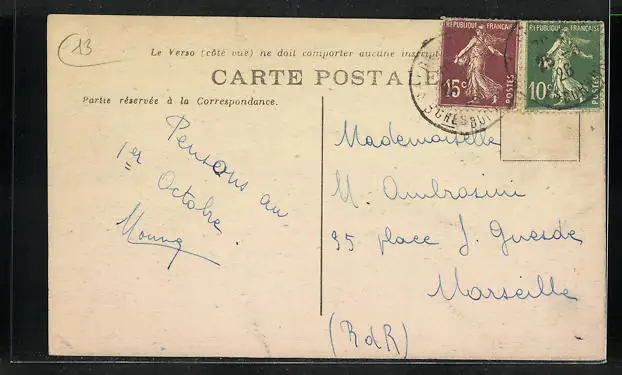 13
Le Verso (côté vue) ne doit comporter aucune inscript
CARTE POSTALE
Partie réservée à la Correspondance.
REPUBLIQUE FRANÇAISE
15c
POSTES
REPUBLIQUE FRANÇAISE
10c
POSTES
26
Pensons au
1er Octobre
Mademoiselle
M. Ambrosini
35 place J. Guesde
Marseille
(BdR)